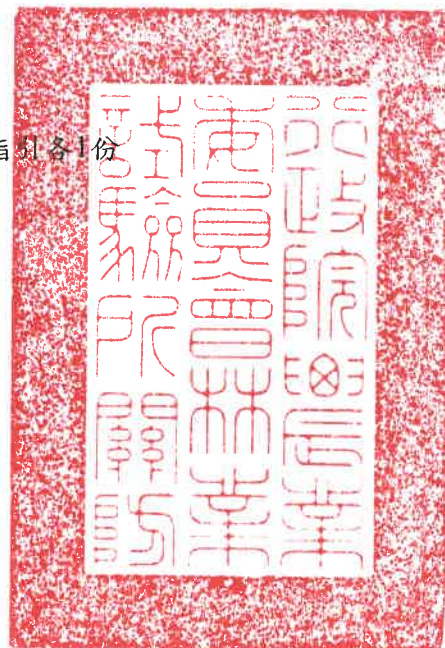 指引各1份
行政院農業
委員會林業
試驗所關防